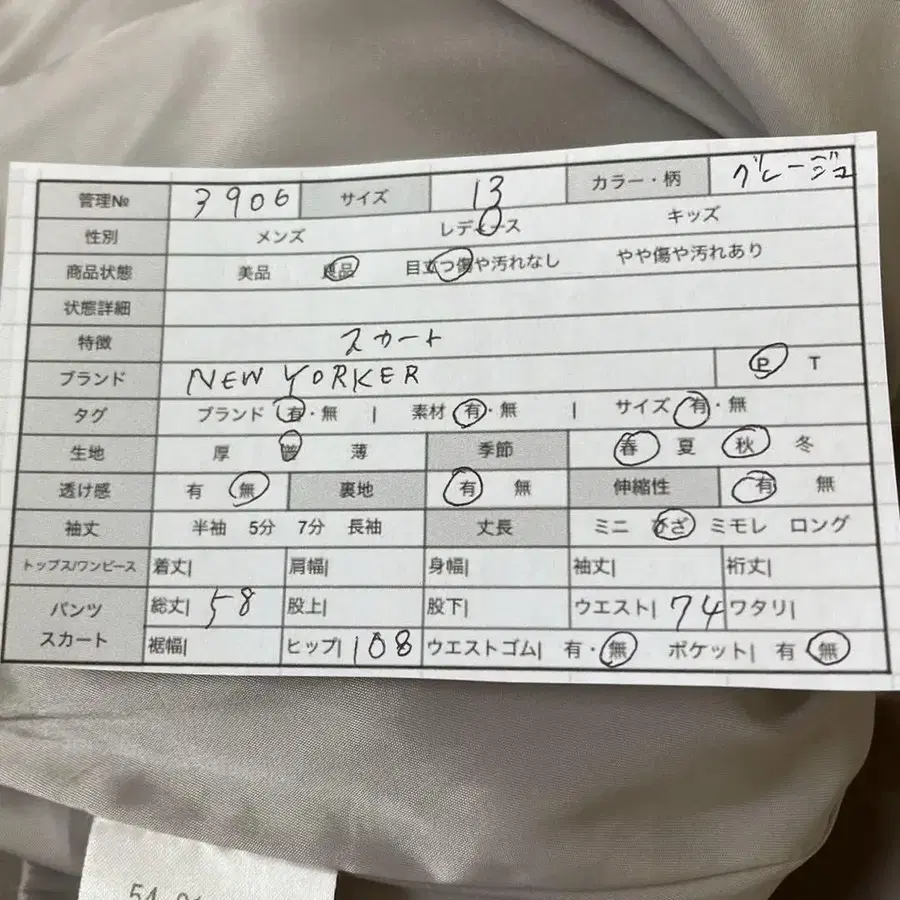 管理№ 3906 サイズ 13 カラー・柄 グレージュ
性別 メンズ レディース キッズ
商品状態 美品 良品 目立つ傷や汚れなし やや傷や汚れあり
状態詳細
特徴 スカート
ブランド NEW YORKER P T
タグ ブランド 有・無 | 素材 有・無 | サイズ 有・無
生地 厚 普 薄 季節 春 夏 秋 冬
透け感 有 無 裏地 有 無 伸縮性 有 無
袖丈 半袖 5分 7分 長袖 丈長 ミニ ひざ ミモレ ロング
トップス/ワンピース 着丈| 肩幅| 身幅| 袖丈| 裄丈|
パンツ スカート 総丈| 58 股上| 股下| ウエスト| 74 ワタリ|
裾幅| ヒップ| 108 ウエストゴム| 有・無 ポケット| 有 無